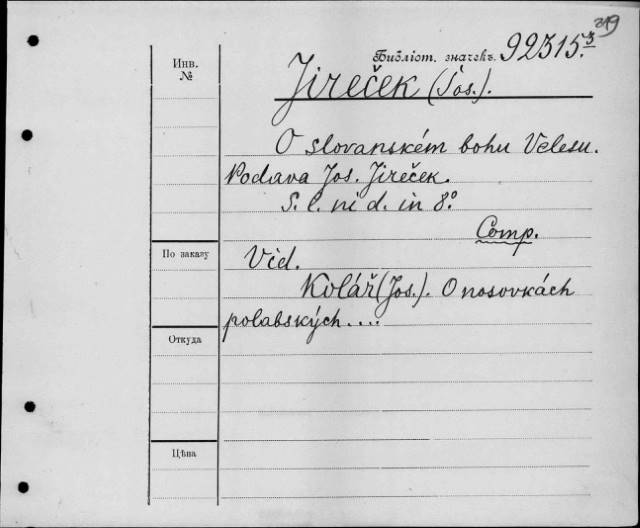 319
Инв.
№
Библіот. значекъ. 92315.3
Jireček (Jos.).
O slovanském bohu Velesu.
Podává Jos. Jireček.
S. l. ni d. in 8°
Comp.
По заказу
Vid.
Kolář (Jos.). O nosovkách
polabských....
Откуда
Цѣна